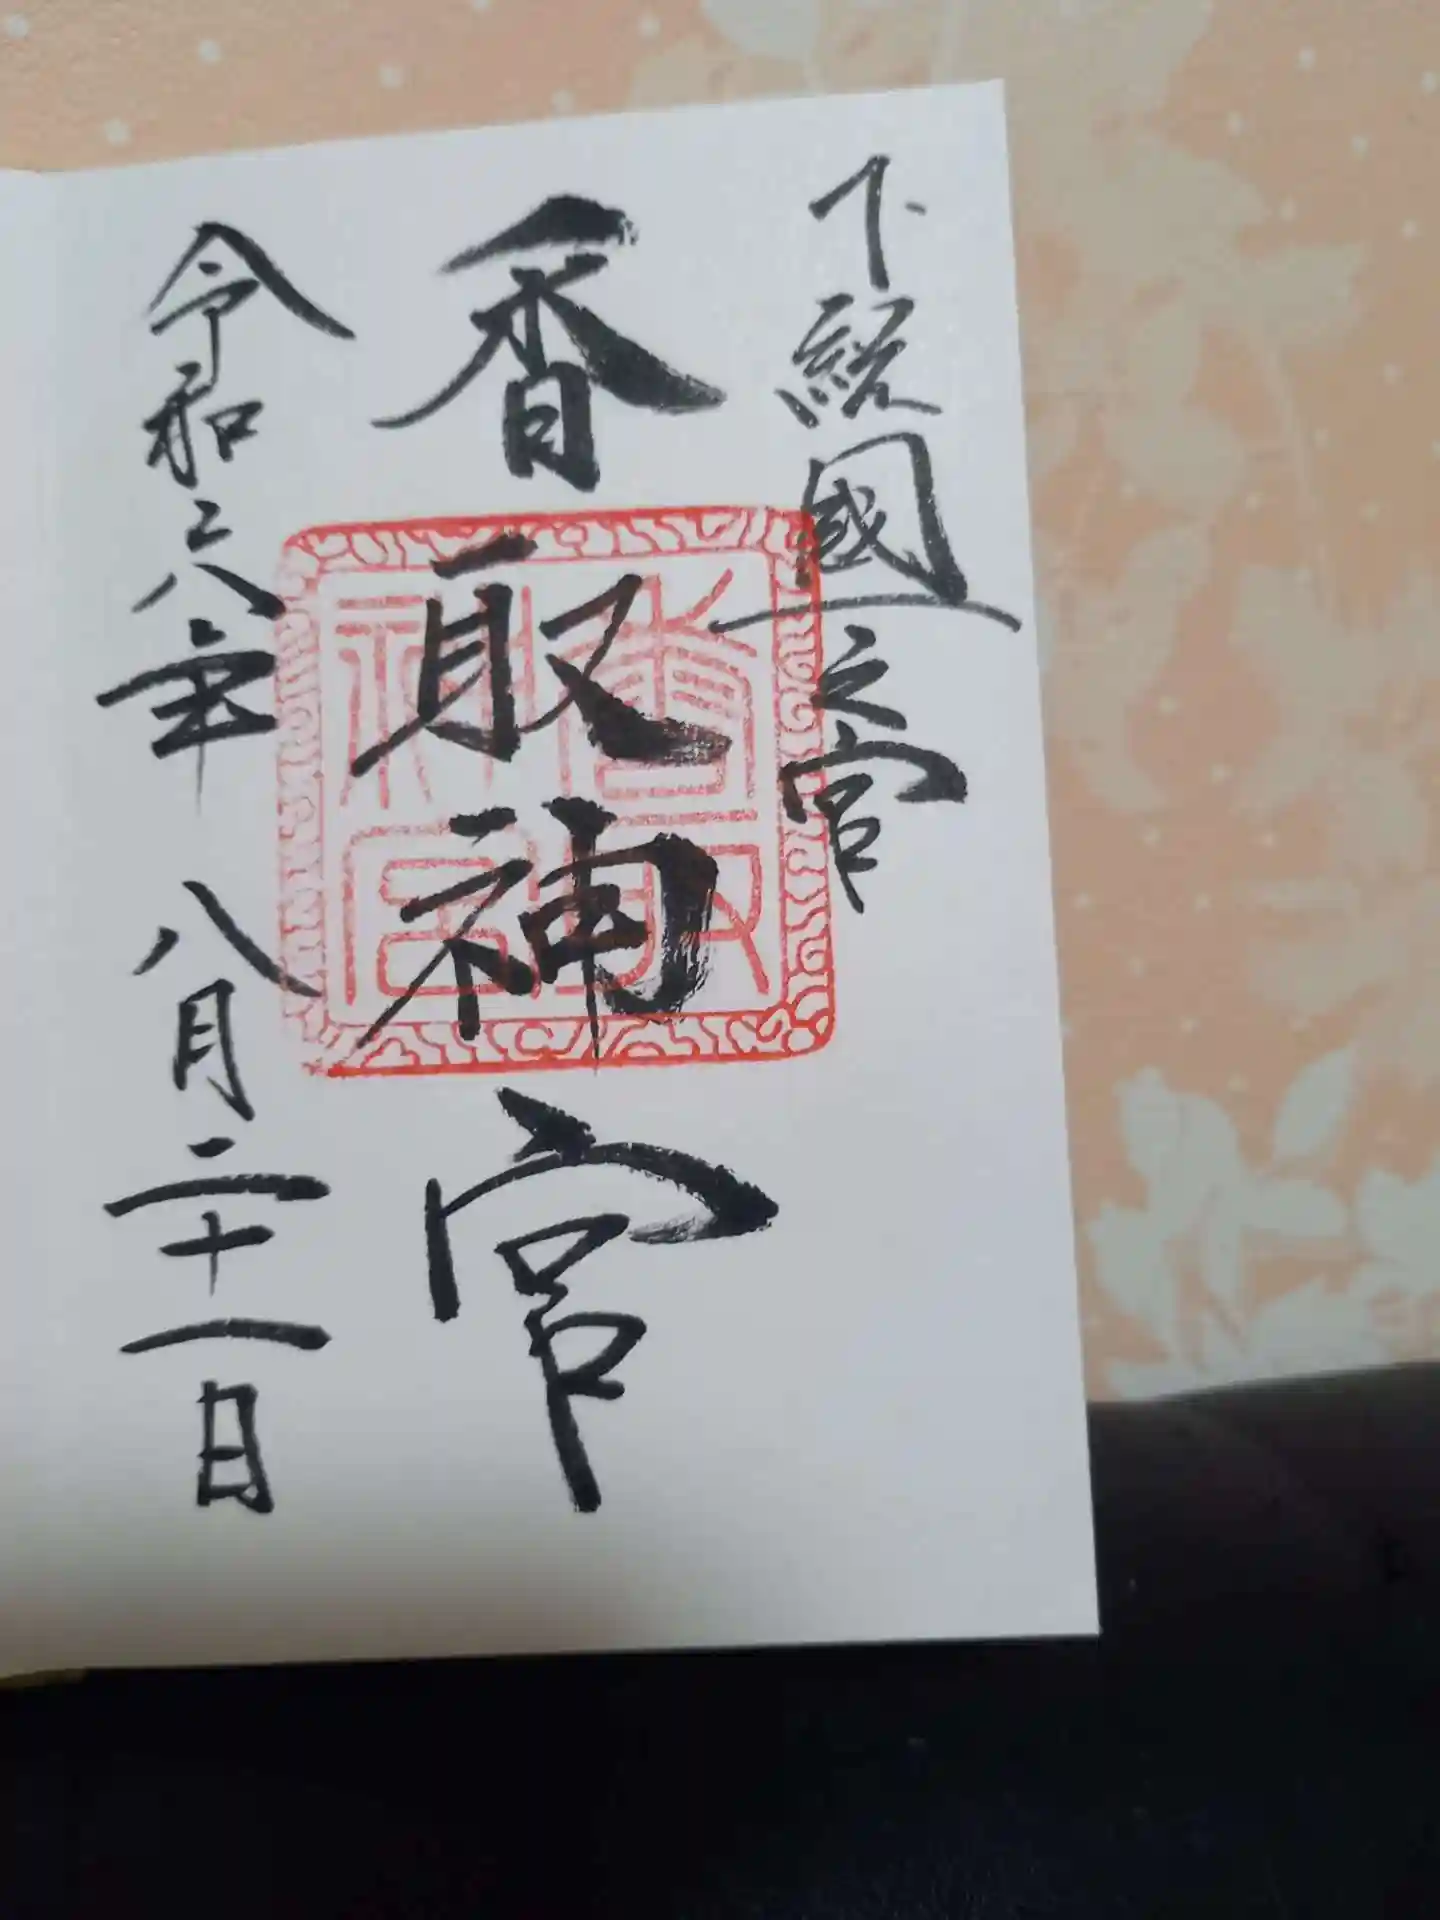 下総國一之宮
香取神宮
令和六年八月二十一日
香取
神宮